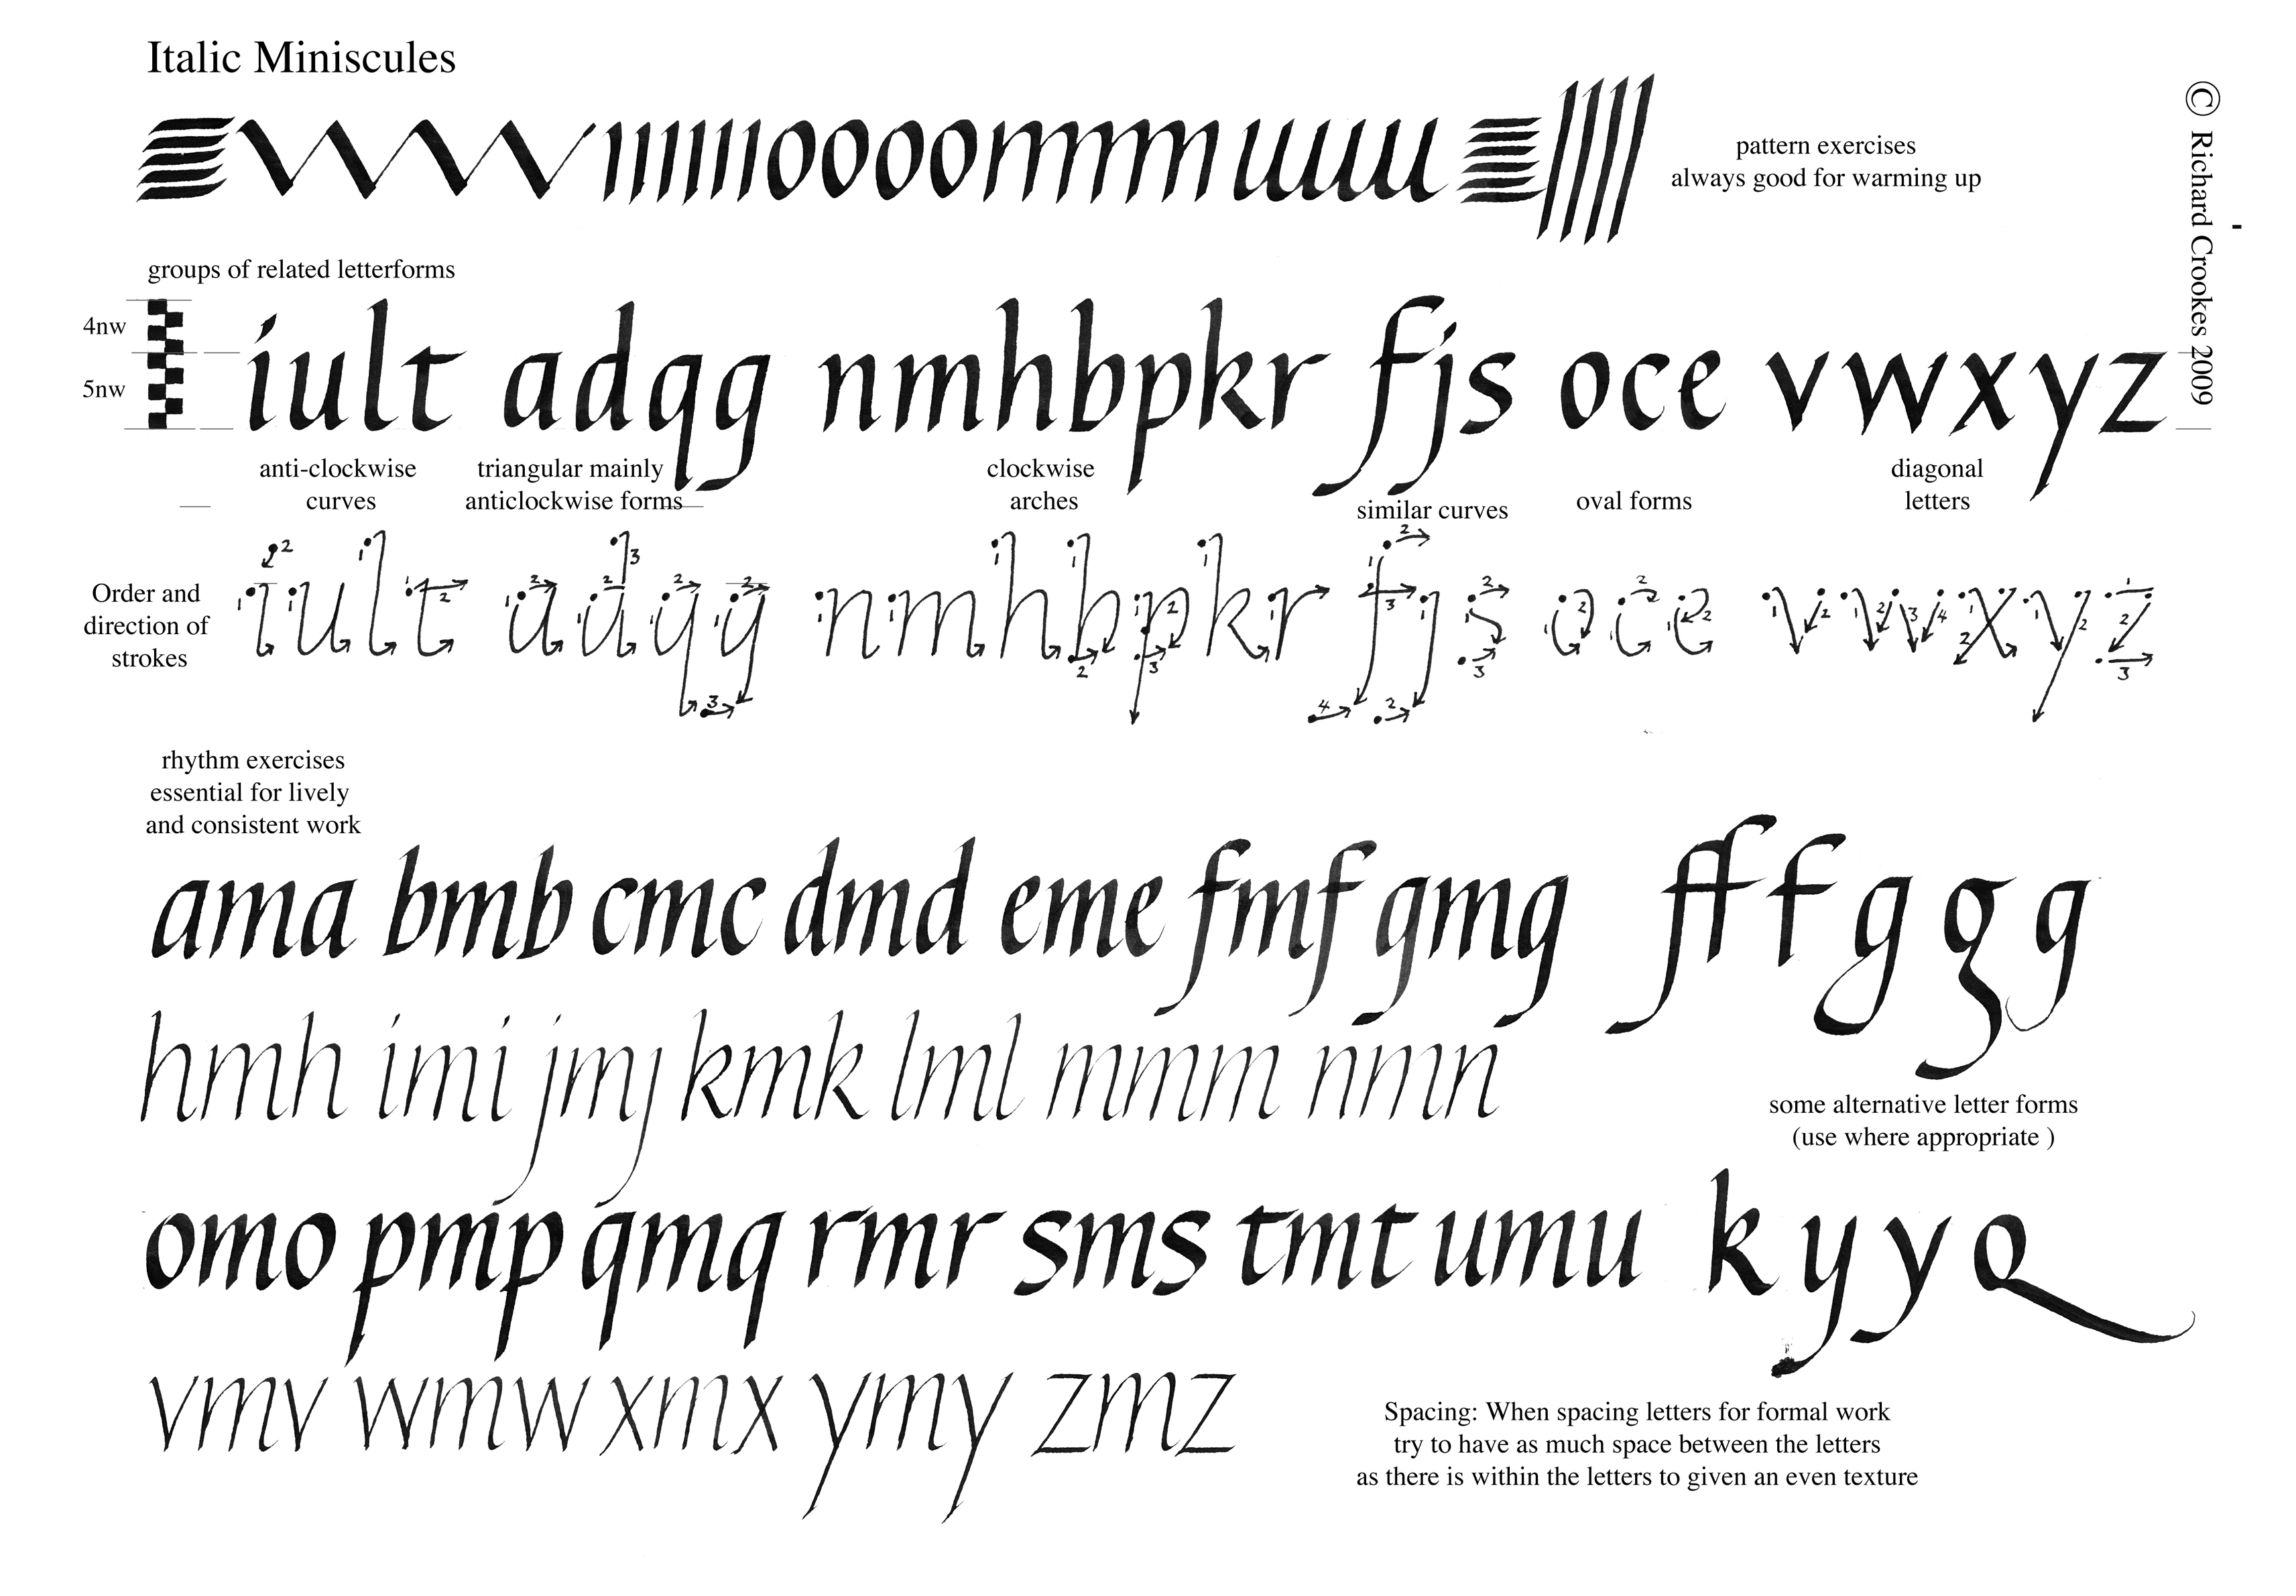 Italic Miniscules
pattern exercises
always good for warming up
© Richard Crookes 2009
groups of related letterforms
4nw
5nw
iult adqg nmhbpkr fjs oce vwxyz
anti-clockwise
curves
triangular mainly
anticlockwise forms
clockwise
arches
similar curves
oval forms
diagonal
letters
Order and
direction of
strokes
iult adqg nmhbpkr fjs oce vwxyz
rhythm exercises
essential for lively
and consistent work
ama bmb cmc dmd eme fmf gmg ff f g g g
hmh imi jmj kmk lml mmm nmn
some alternative letter forms
(use where appropriate )
omo pmp qmq rmr sms tmt umu k y y Q
vmv wmw xmx ymy zmz
Spacing: When spacing letters for formal work
try to have as much space between the letters
as there is within the letters to given an even texture